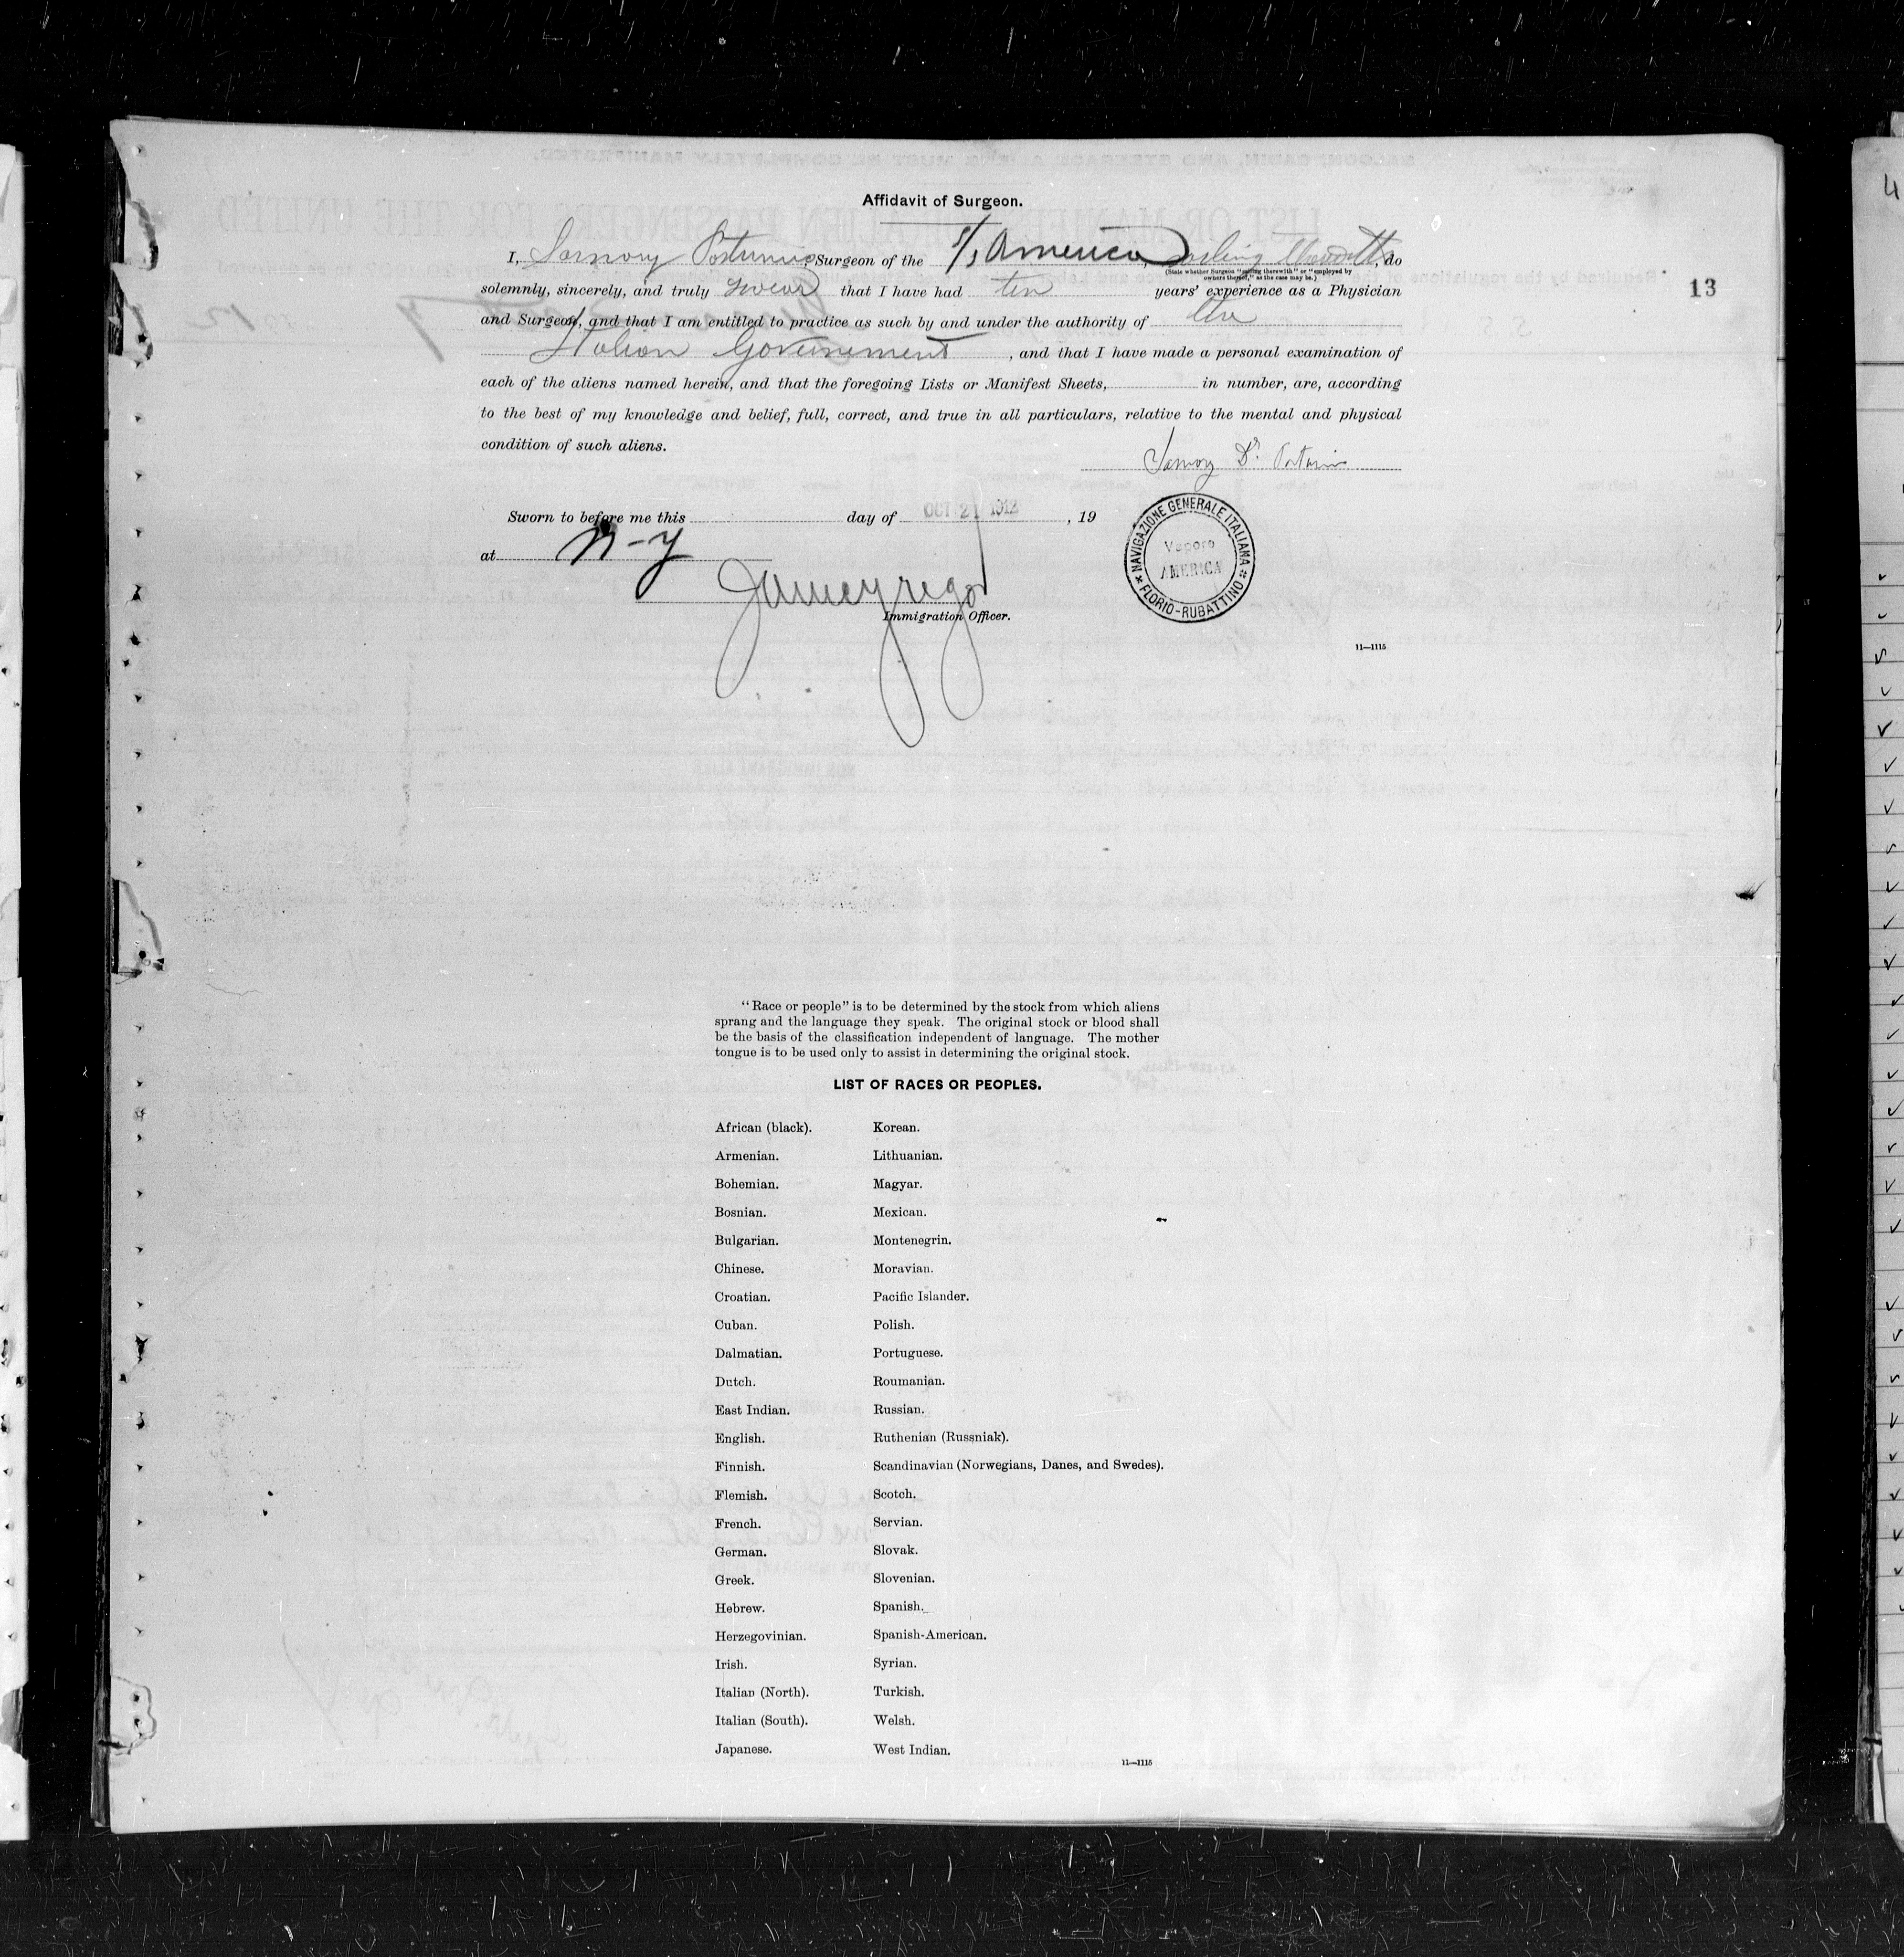 Affidavit of Surgeon.
I, , Surgeon of the S/S America, sailing therewith, do
(State whether Surgeon "sailing therewith" or "employed by owners thereof," as the case may be.)
solemnly, sincerely, and truly swear that I have had ten years' experience as a Physician
and Surgeon, and that I am entitled to practice as such by and under the authority of the
Italian Governement, and that I have made a personal examination of
each of the aliens named herein, and that the foregoing Lists or Manifest Sheets, in number, are, according
to the best of my knowledge and belief, full, correct, and true in all particulars, relative to the mental and physical
condition of such aliens.
Sworn to before me this day of OCT 21 1912, 19
at N-Y
Immigration Officer.
NAVIGAZIONE GENERALE ITALIANA
Vapore
AMERICA
FLORIO-RUBATTINO
11—1115
13
"Race or people" is to be determined by the stock from which aliens
sprang and the language they speak. The original stock or blood shall
be the basis of the classification independent of language. The mother
tongue is to be used only to assist in determining the original stock.
LIST OF RACES OR PEOPLES.
African (black).
Armenian.
Bohemian.
Bosnian.
Bulgarian.
Chinese.
Croatian.
Cuban.
Dalmatian.
Dutch.
East Indian.
English.
Finnish.
Flemish.
French.
German.
Greek.
Hebrew.
Herzegovinian.
Irish.
Italian (North).
Italian (South).
Japanese.
Korean.
Lithuanian.
Magyar.
Mexican.
Montenegrin.
Moravian.
Pacific Islander.
Polish.
Portuguese.
Roumanian.
Russian.
Ruthenian (Russniak).
Scandinavian (Norwegians, Danes, and Swedes).
Scotch.
Servian.
Slovak.
Slovenian.
Spanish.
Spanish-American.
Syrian.
Turkish.
Welsh.
West Indian.
11—1115